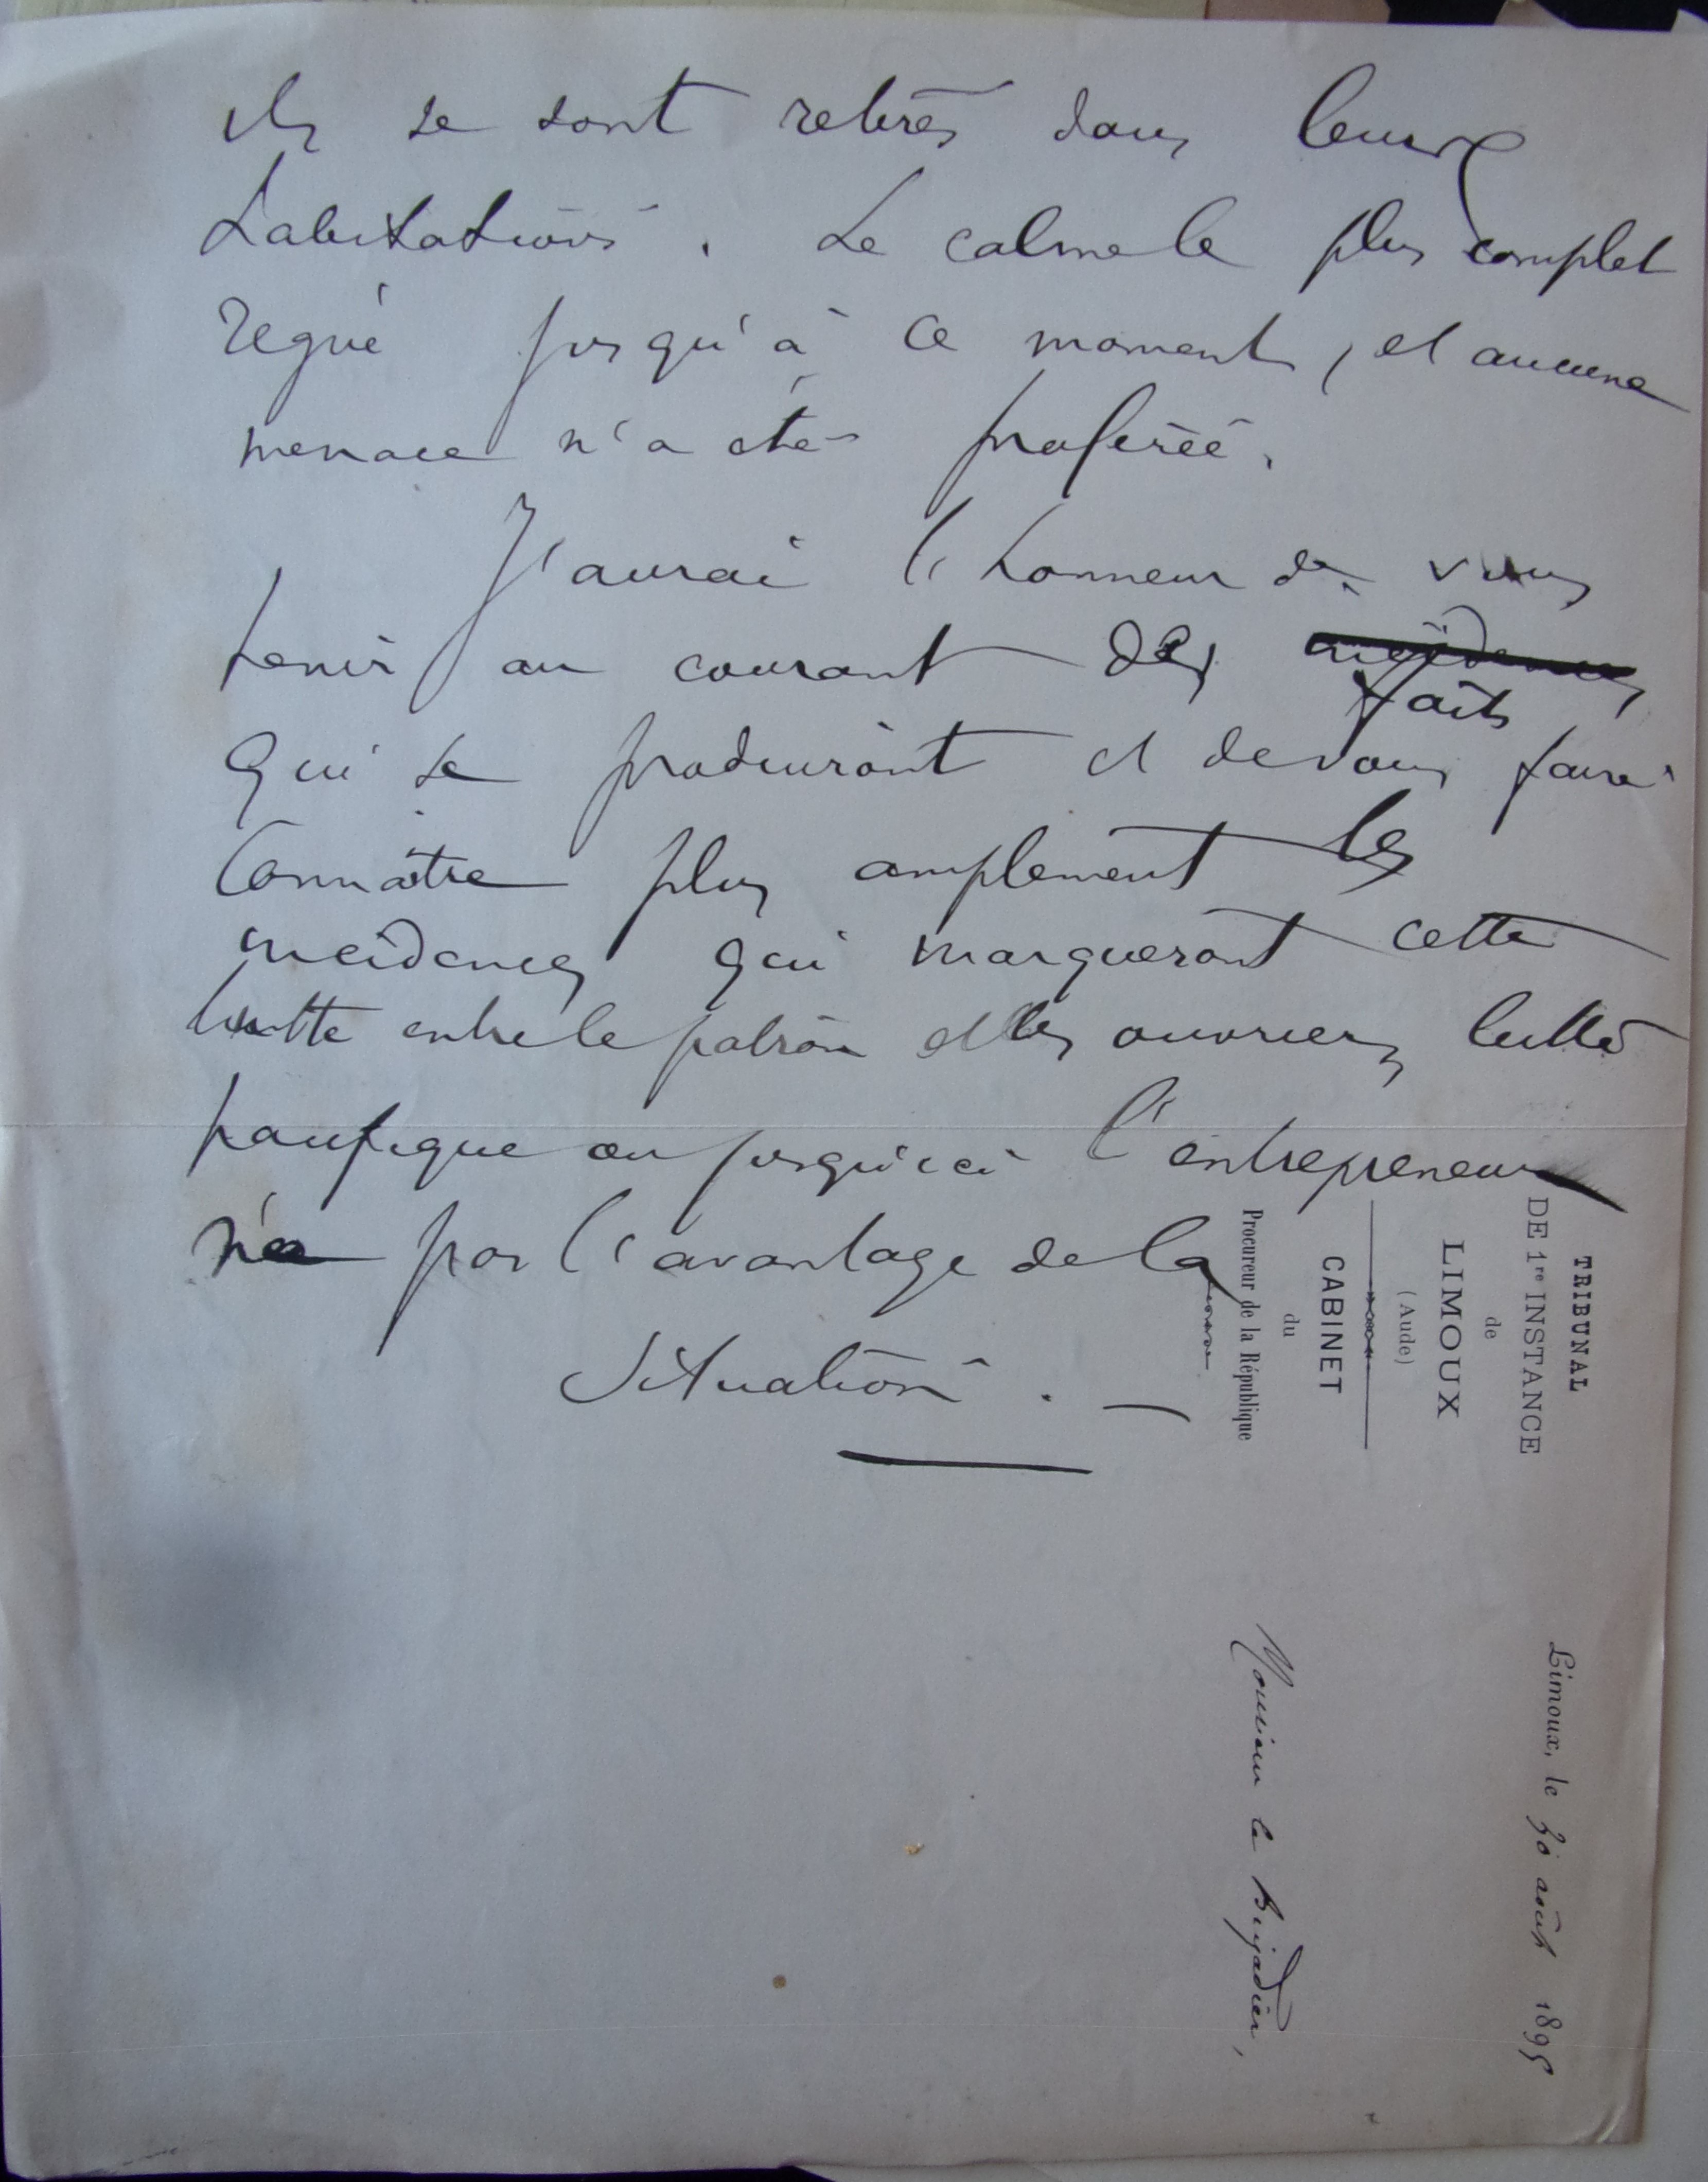 ils se sont retirés dans leurs
habitations. Le calme le plus complet
règne jusqu'à ce moment, et aucune
menace n'a été proférée.
J'aurai l'honneur de vous
tenir au courant des incidences
faits
qui se produiront et de vous faire
connaître plus amplement les
incidences qui marqueront cette
lutte entre le patron et les ouvriers, lutte
pacifique où jusqu'ici l'entrepreneur
n'a pas l'avantage de la
situation. —
TRIBUNAL
DE 1re INSTANCE
de
LIMOUX
(Aude)
CABINET
du
Procureur de la République
Limoux, le 30 août 1895
Monsieur le Brigadier,